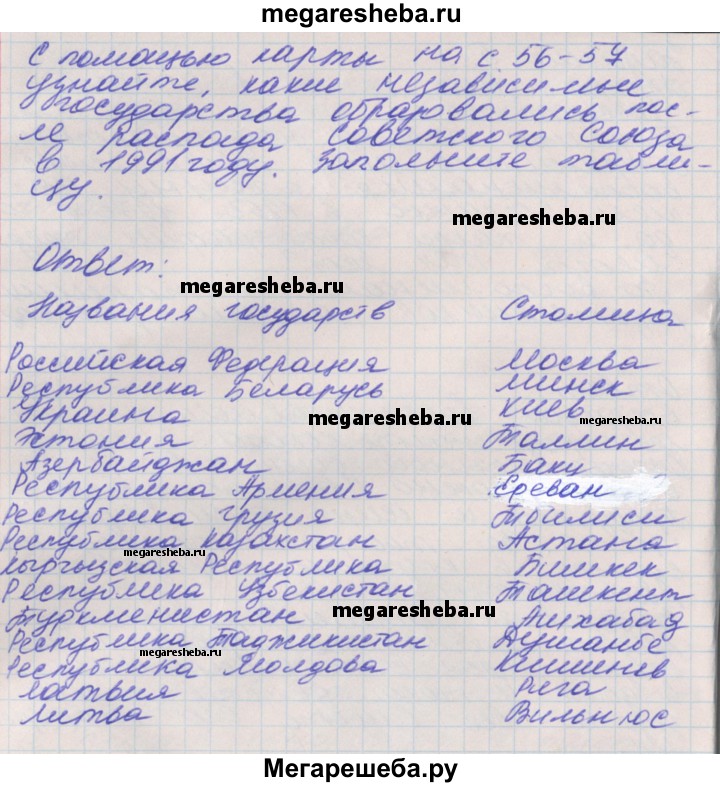 megaresheba.ru
С помощью карты на с 56-57
узнайте, какие независимые
государства образовались пос-
ле распада Советского Союза
в 1991 году. Заполните табли-
цу.
megaresheba.ru
Ответ:
megaresheba.ru
Названия государств Столица
Российская Федерация Москва
Республика Беларусь Минск
Украина megaresheba.ru Киев megaresheba.ru
Эстония Таллин
Азербайджан Баку
Республика Армения Ереван
Республика Грузия Тбилиси
Республика Казахстан Астана
megaresheba.ru
Кыргызская Республика Бишкек
Республика Узбекистан Ташкент
Туркменистан megaresheba.ru Ашхабад
Республика Таджикистан Душанбе
megaresheba.ru
Республика Молдова Кишинев
Латвия Рига
Литва Вильнюс
Мегарешеба.ру